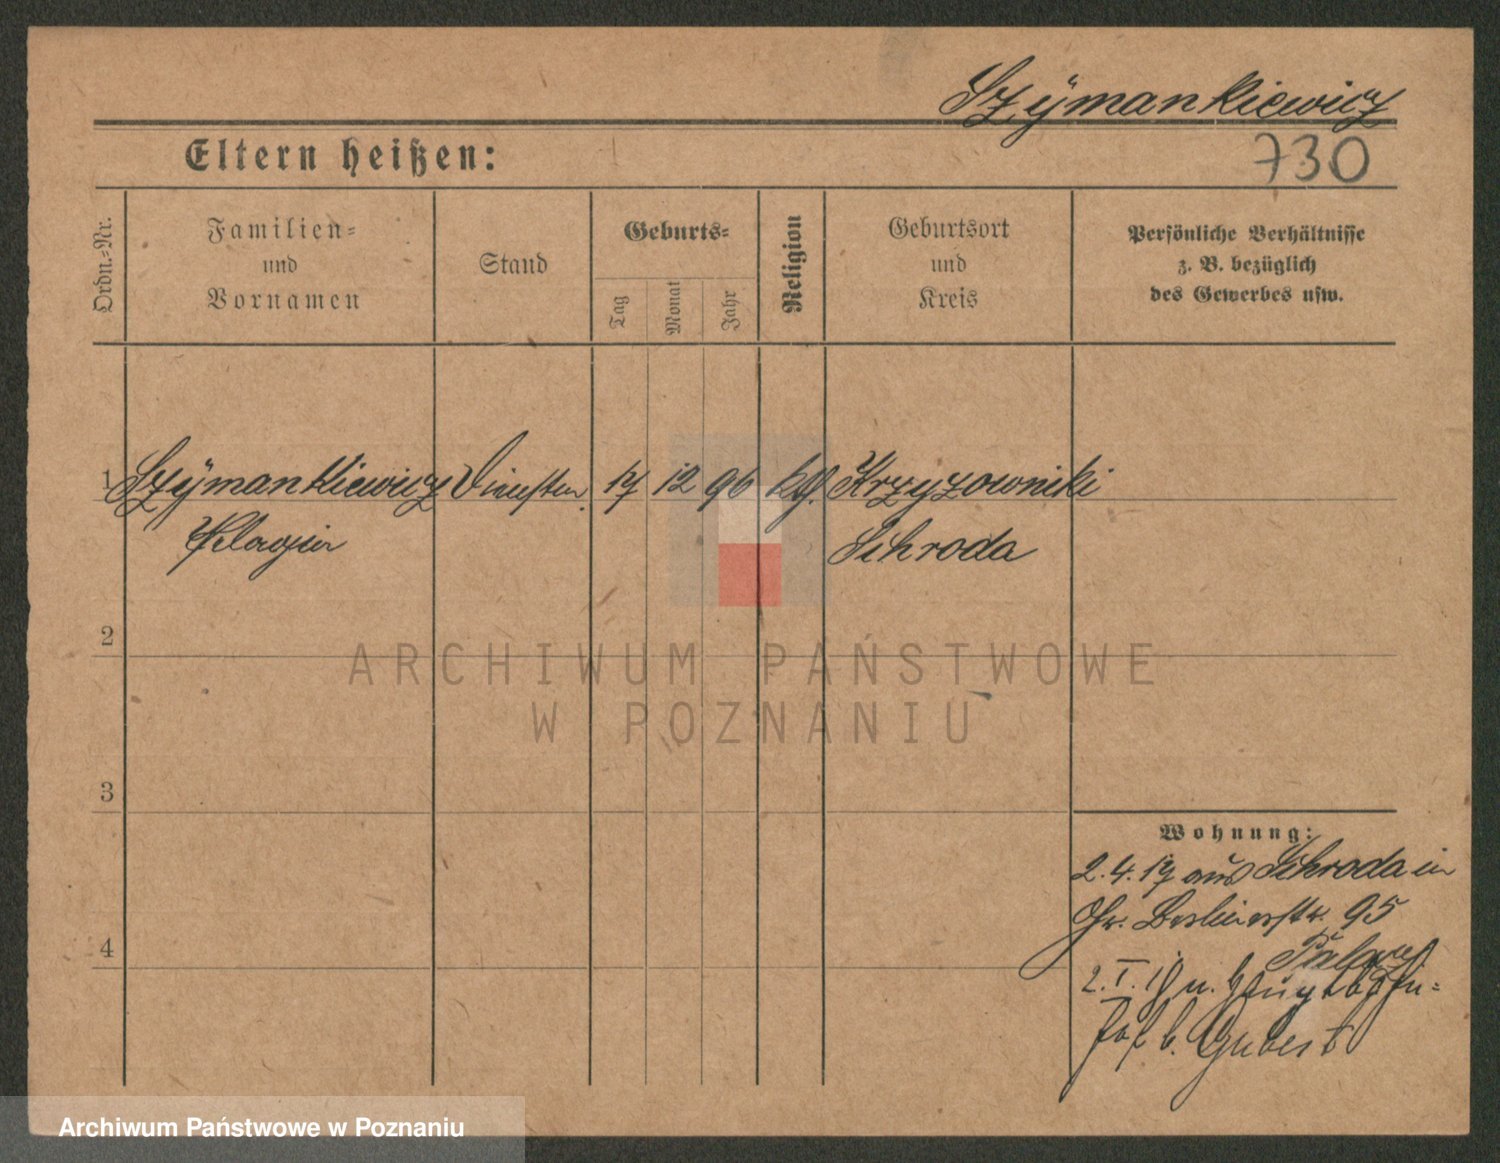 Szÿmankiewicz
Eltern heißen:
730
Ordn.-Nr.
Familien-
und
Vornamen
Stand
Geburts-
Tag
Monat
Jahr
Religion
Geburtsort
und
Kreis
Persönliche Verhältnisse
z. B. bezüglich
des Gewerbes usw.
1 Szÿmankiewicz 17 12 96 kg. Krzyzowniki
Pelagia
Schroda
2
3
4
Wohnung:
2.4.17 aus Schroda in
Gr. Berlinerstr. 95
2.I.18 n.
b.
ARCHIWUM PAŃSTWOWE
W POZNANIU
Archiwum Państwowe w Poznaniu